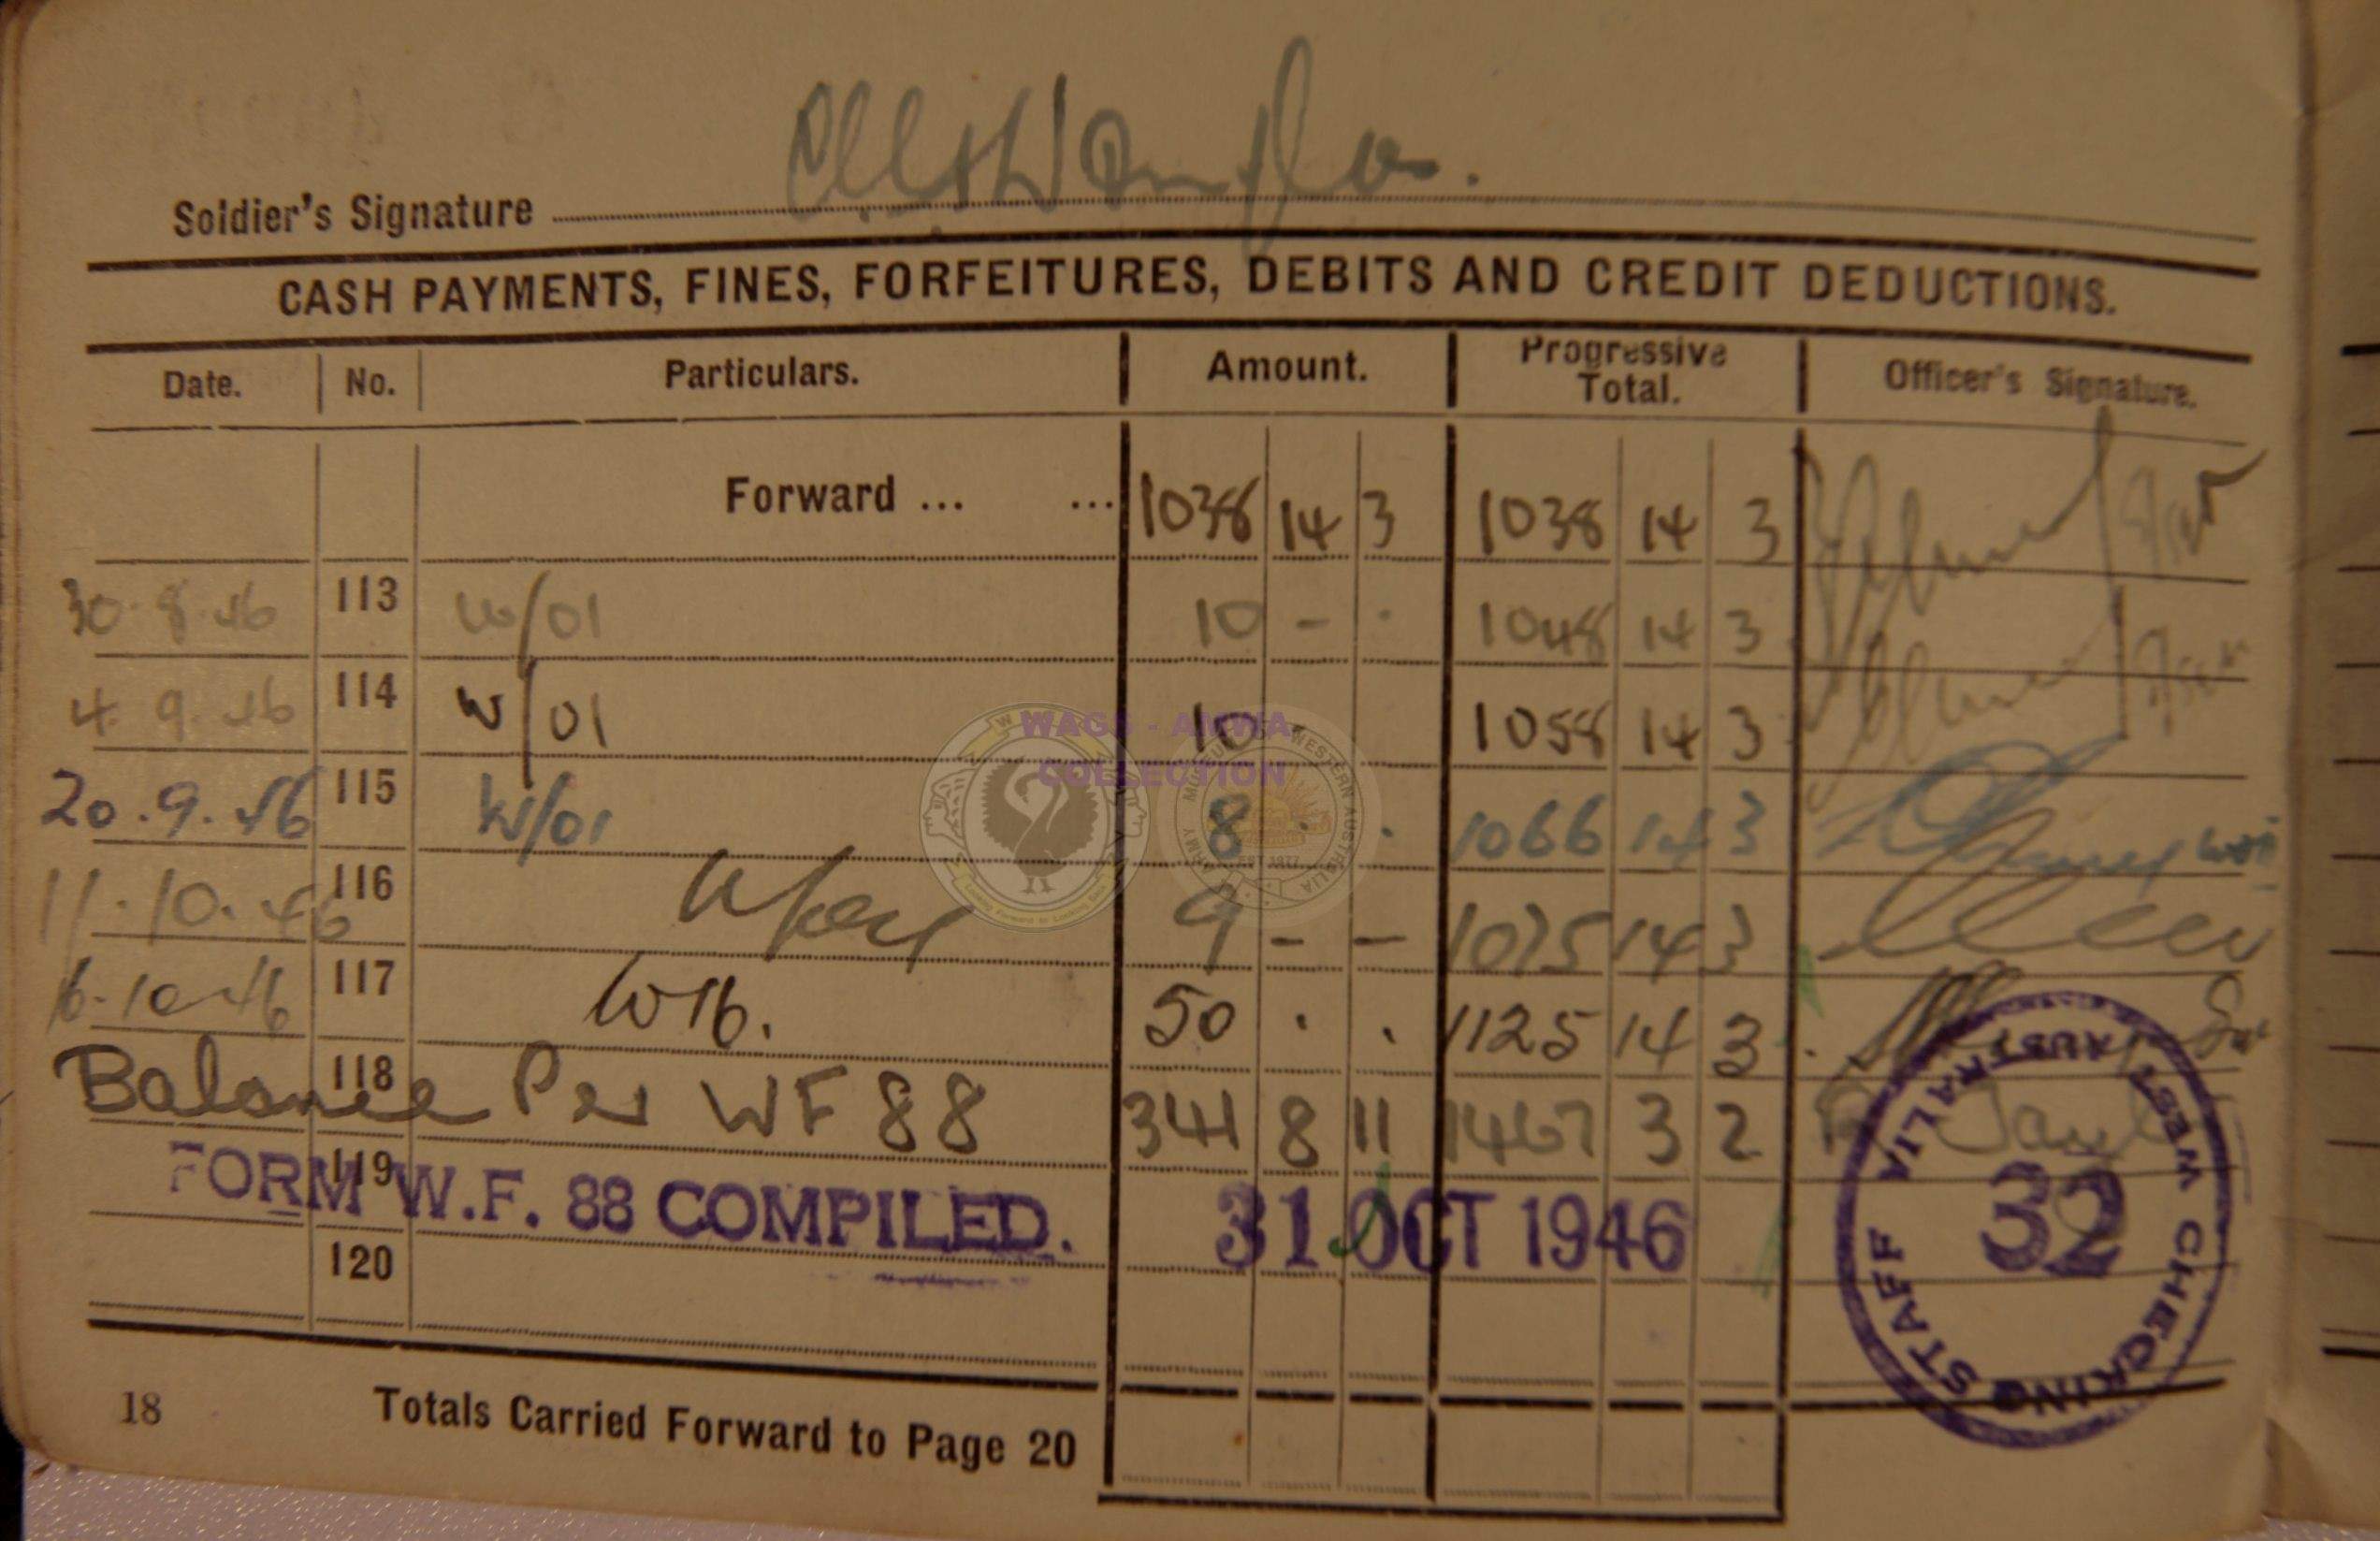 Soldier's Signature
CASH PAYMENTS, FINES, FORFEITURES, DEBITS AND CREDIT DEDUCTIONS.
Date. No. Particulars. Amount. Progressive Total. Officer's Signature.
Forward ... ... 1038 14 3 1038 14 3
30.8.46 113 W/01 10 - . 1048 14 3
4.9.46 114 W/01 10 . 1058 14 3
20.9.46 115 W/01 8 . . 1066 14 3
11.10.46 116 9 - - 1075 14 3
6.10.46 117 50 . . 1125 14 3
118 Balance Per WF 88 341 8 11 1467 3 2
119
FORM W.F. 88 COMPILED. 31 OCT 1946
120
18 Totals Carried Forward to Page 20
WEST AUSTRALIA
CHECKING STAFF
32
WAGS - AMWA
COLLECTION